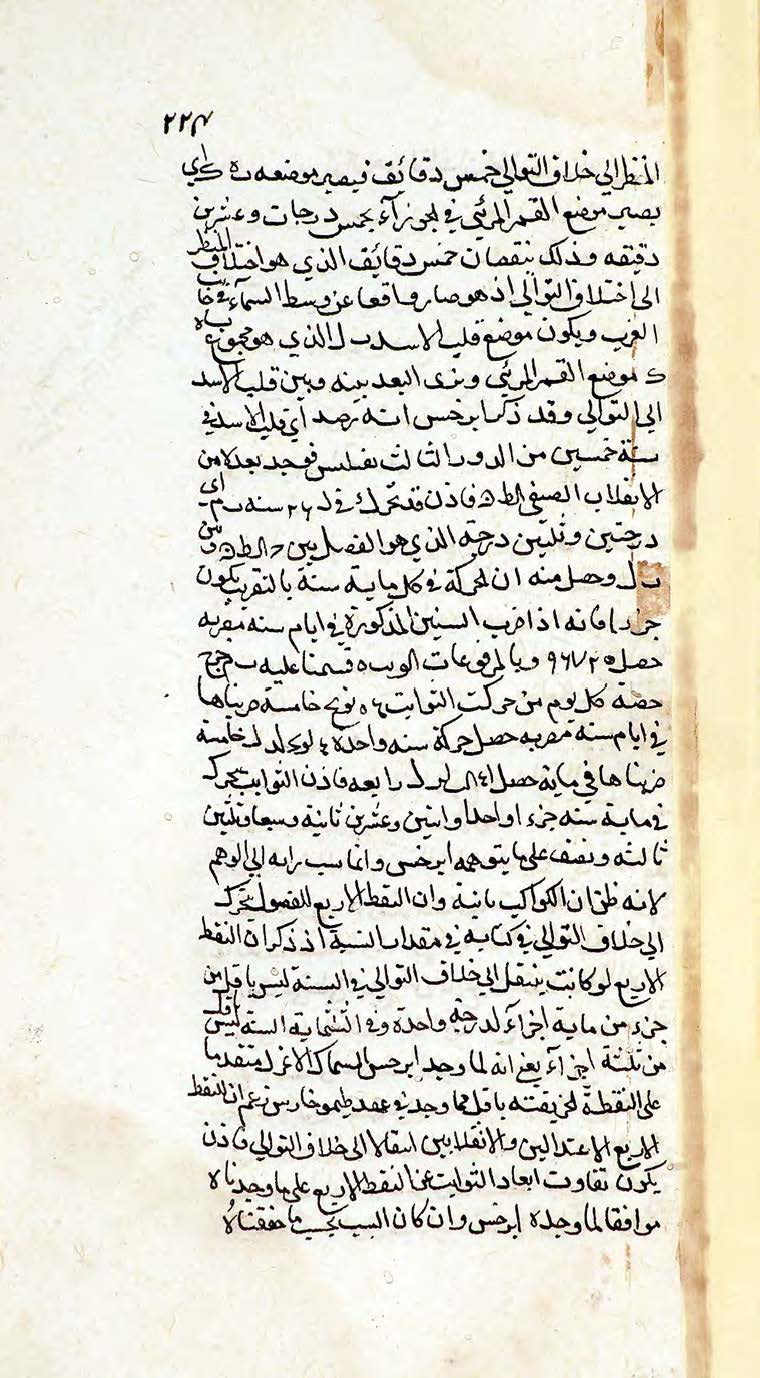 ٢٢٤
المنظر الي خلاف التوالي خمس دقائق فيصير موضعه ه ك اي
يصير موضع القمر المرئي في الجوزآء بخمس درجات وعشرين
دقيقه وذلك بنقصان خمس دقائق الذي هو اختلاف المنظر
الي اختلاف التوالي اذ هو صار واقعا عن وسط السمآء في جانب
الغرب ويكون موضع قلب الاسد ب ل الذي هو مجموع
موضع القمر المرئي وبين قلب الاسد
الي التوالي وقد ذكر ابرخس انه رصد اي قلب الاسد في
سنة خمسين من الدور الثالث لفيلبس فوجد بعده من
الانقلاب الصيفي فاذن قد تحرك في سنه ب م اي
درجتين وثلثين درجه الذي هو الفصل بين ومن
ب ل وحصل منه ان الحركة في كل ماية سنة بالتقريب يكون
جزءا فانه اذا ضرب السنين المذكورة في ايام سنه مصريه
حصل ٩٦٧٢٥ وبالمرفوعات قسمنا عليه
حصة كل يوم من حركت الثوابت خامسة ضربناها
في ايام سنة مصريه حصل حركة سنه واحدة خامسة
ضربناها في ماية حصل رابعه فاذن الثوابت يتحرك
في ماية سنه جزءا واحدا واثنين وعشرين ثانية وسبعا وثلثين
ثالثه ونقف علي ما يتوهمه ابرخس وانما نسب رايه الي الوهم
لانه ظن ان الكواكب ثابتة وان النقط الاربع للفصول تتحرك
الي خلاف التوالي في كتابه في مقدار السنة اذ ذكر ان النقط
الاربع لو كانت ينتقل الي خلاف التوالي في السنة ليس باقل من
جزء من ماية اجزآء لدرجه واحدة وفي الثلثماية السنة ليس اقل
من ثلثة اجزآء يعني انه لما وجد ابرخس السماك الاعزل متقدما
علي النقطة الخريفته باقل مما وجد في عهد طيموخارس زعم ان النقط
الاربع الاعتدالين والانقلابين انتقالا الي خلاف التوالي فاذن
يكون تفاوت ابعاد الثوابت عن النقط الاربع علي ما وجدناه
موافقا لما وجده ابرخس وان كان السبب بحسب ما حققناه